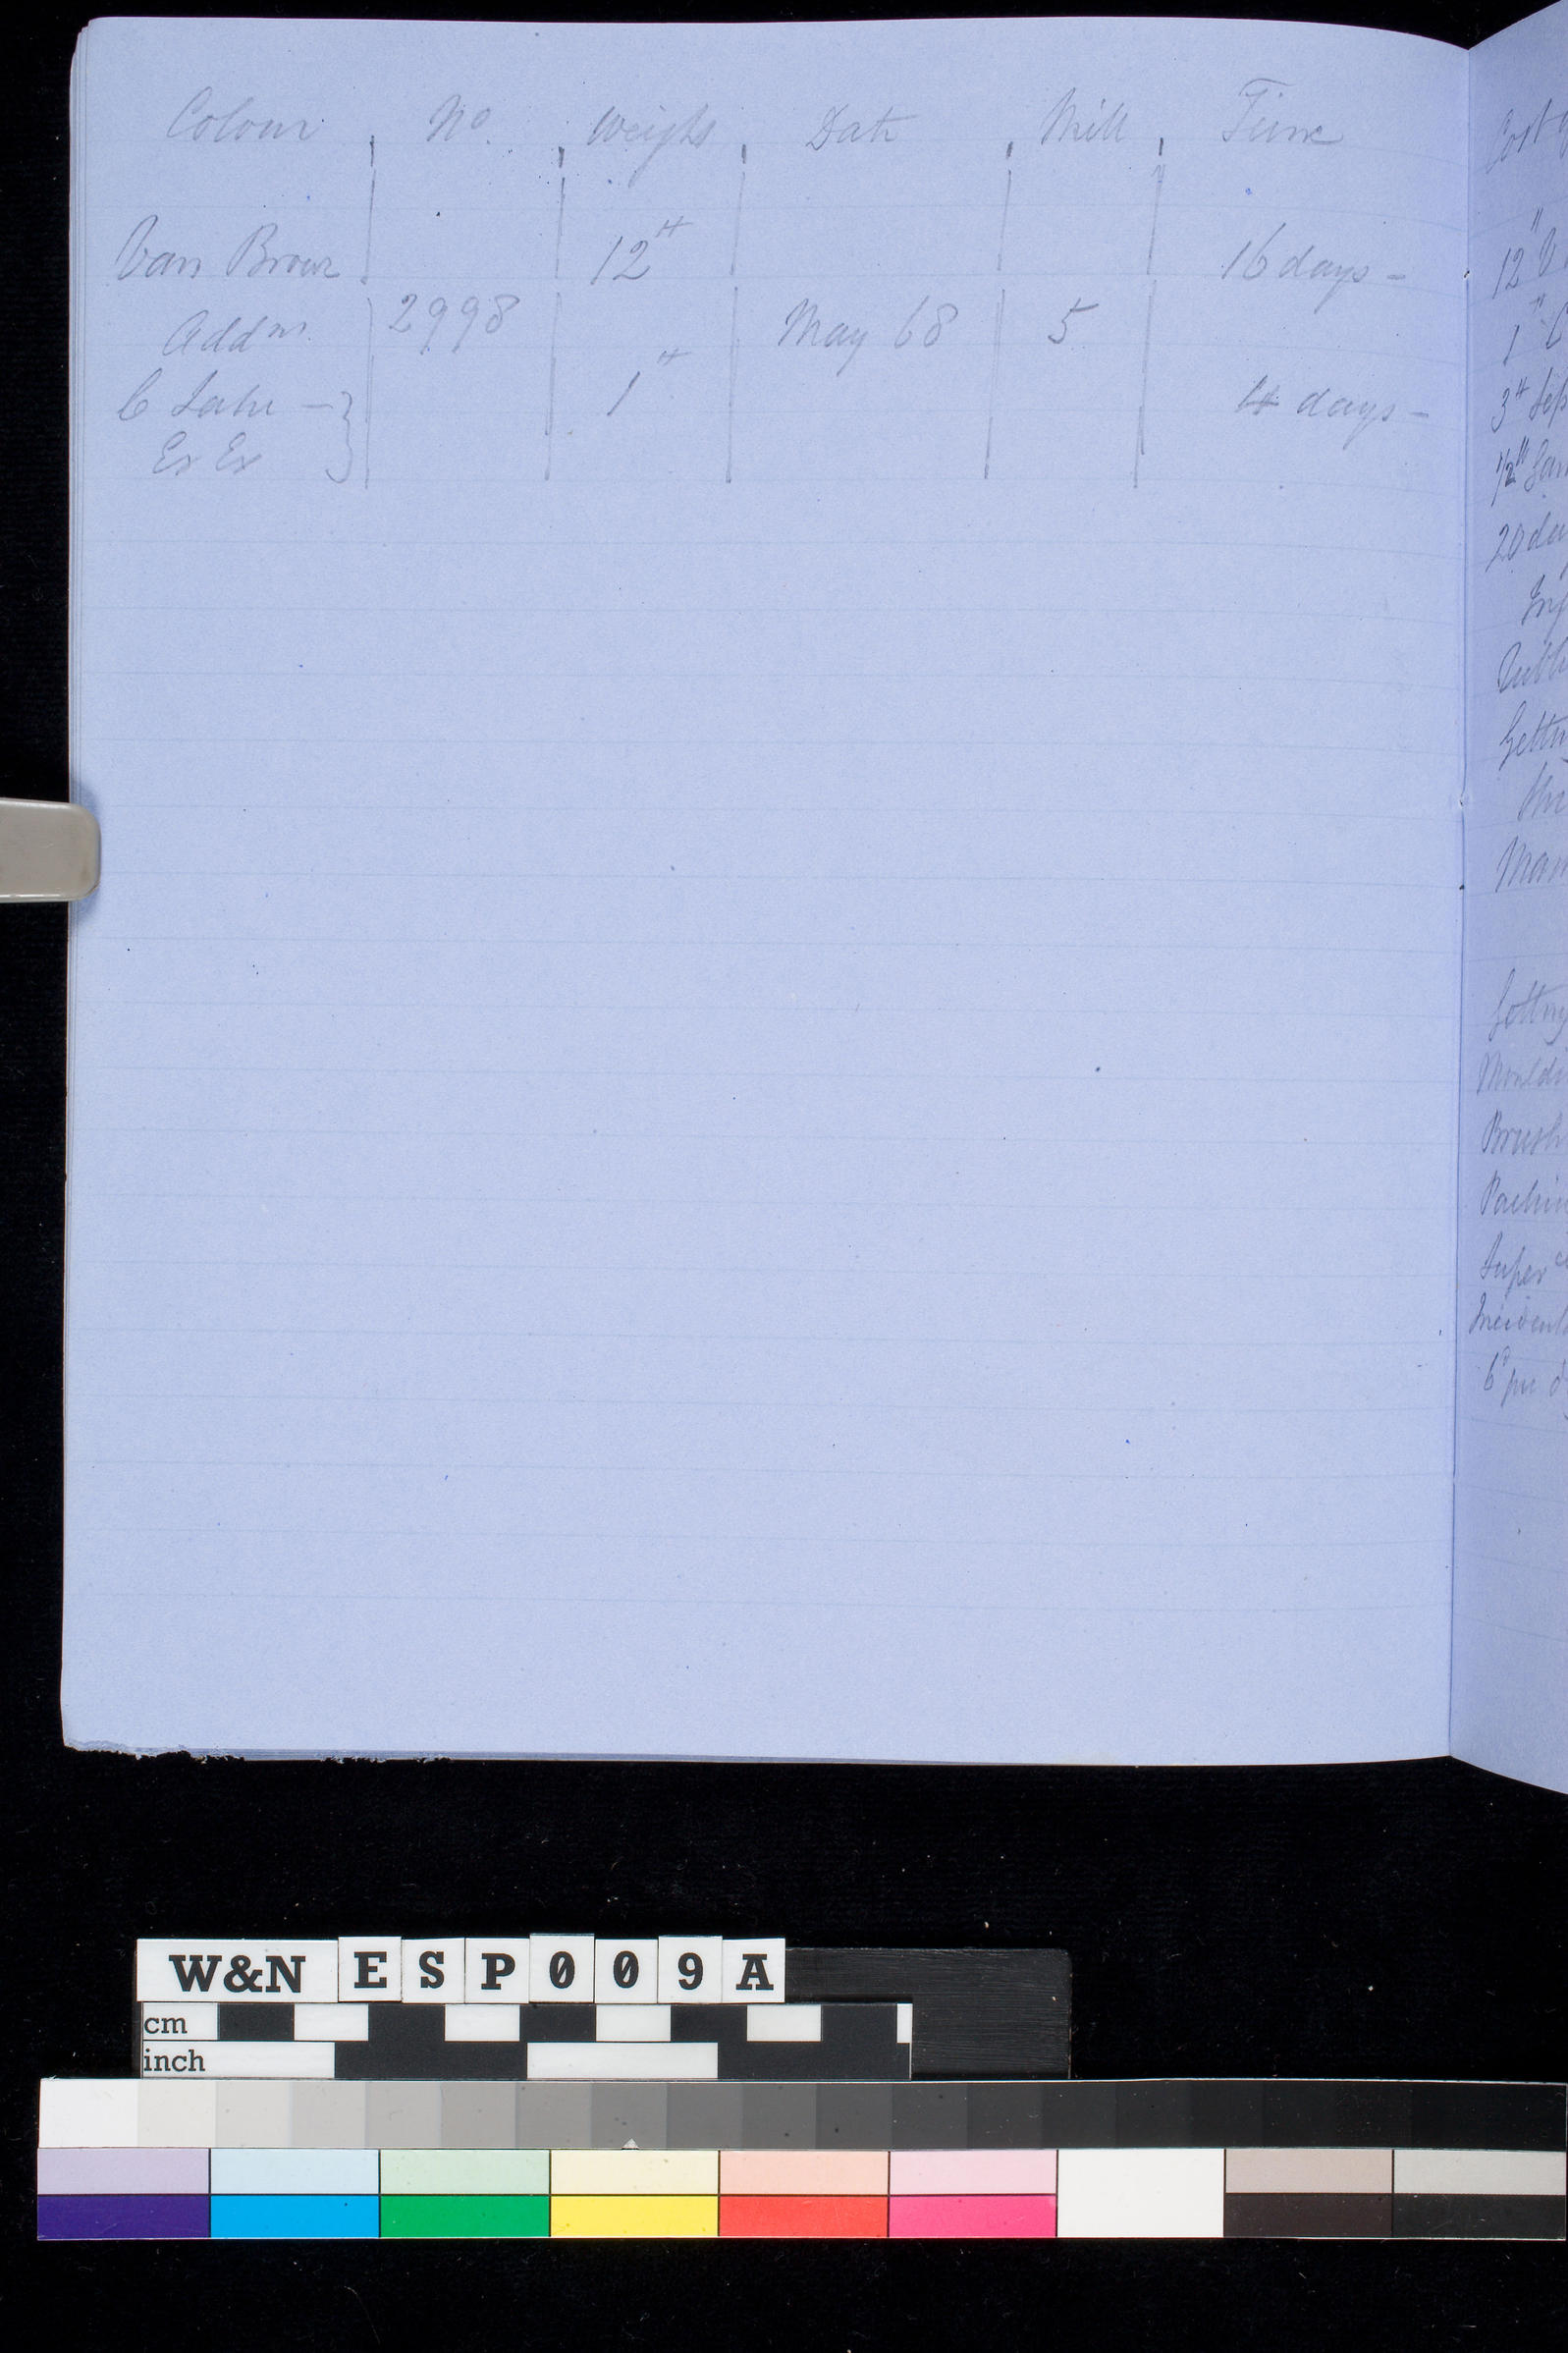 Colour No. Weight Date Mill Time
Van Brown 12" 16 days –
Addnl 2998 May 68 5
C Lake – } 1" 4 days –
Ex Ex
Cost
12"
1"
3"
1/2"
20 da
Getti
Man
Getting
Mouldi
Brush
Packin
Super
Incident
6 per
W&N ESP009A
cm
inch